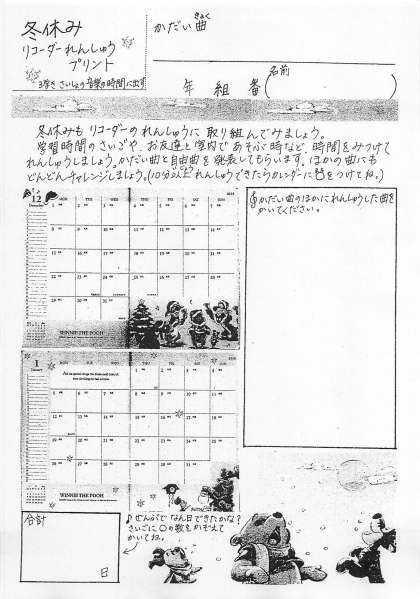 冬休み
リコーダーれんしゅう
プリント
3学き さいしょの 音楽の時間に出す
かだい曲
きょく
年 組 番(
名前
)
冬休みも リコーダーの れんしゅうに 取り組んでみましょう。
学習時間のさいごや、お友達と室内で あそぶ時など、時間をみつけて
れんしゅうしましょう。かだい曲と自由曲を 発表してもらいます。ほかの曲にも
どんどんチャレンジしましょう。(10分以上れんしゅうできたらカレンダーに
をつけてね。)
12
WINNIE THE POOH
1
January
WINNIE THE POOH
かだい曲のほかにれんしゅうした曲を
かいてください。
合計
日
♪ぜんぶで なん日できたかな?
さいごに○の数をかぞえて
かいてね。